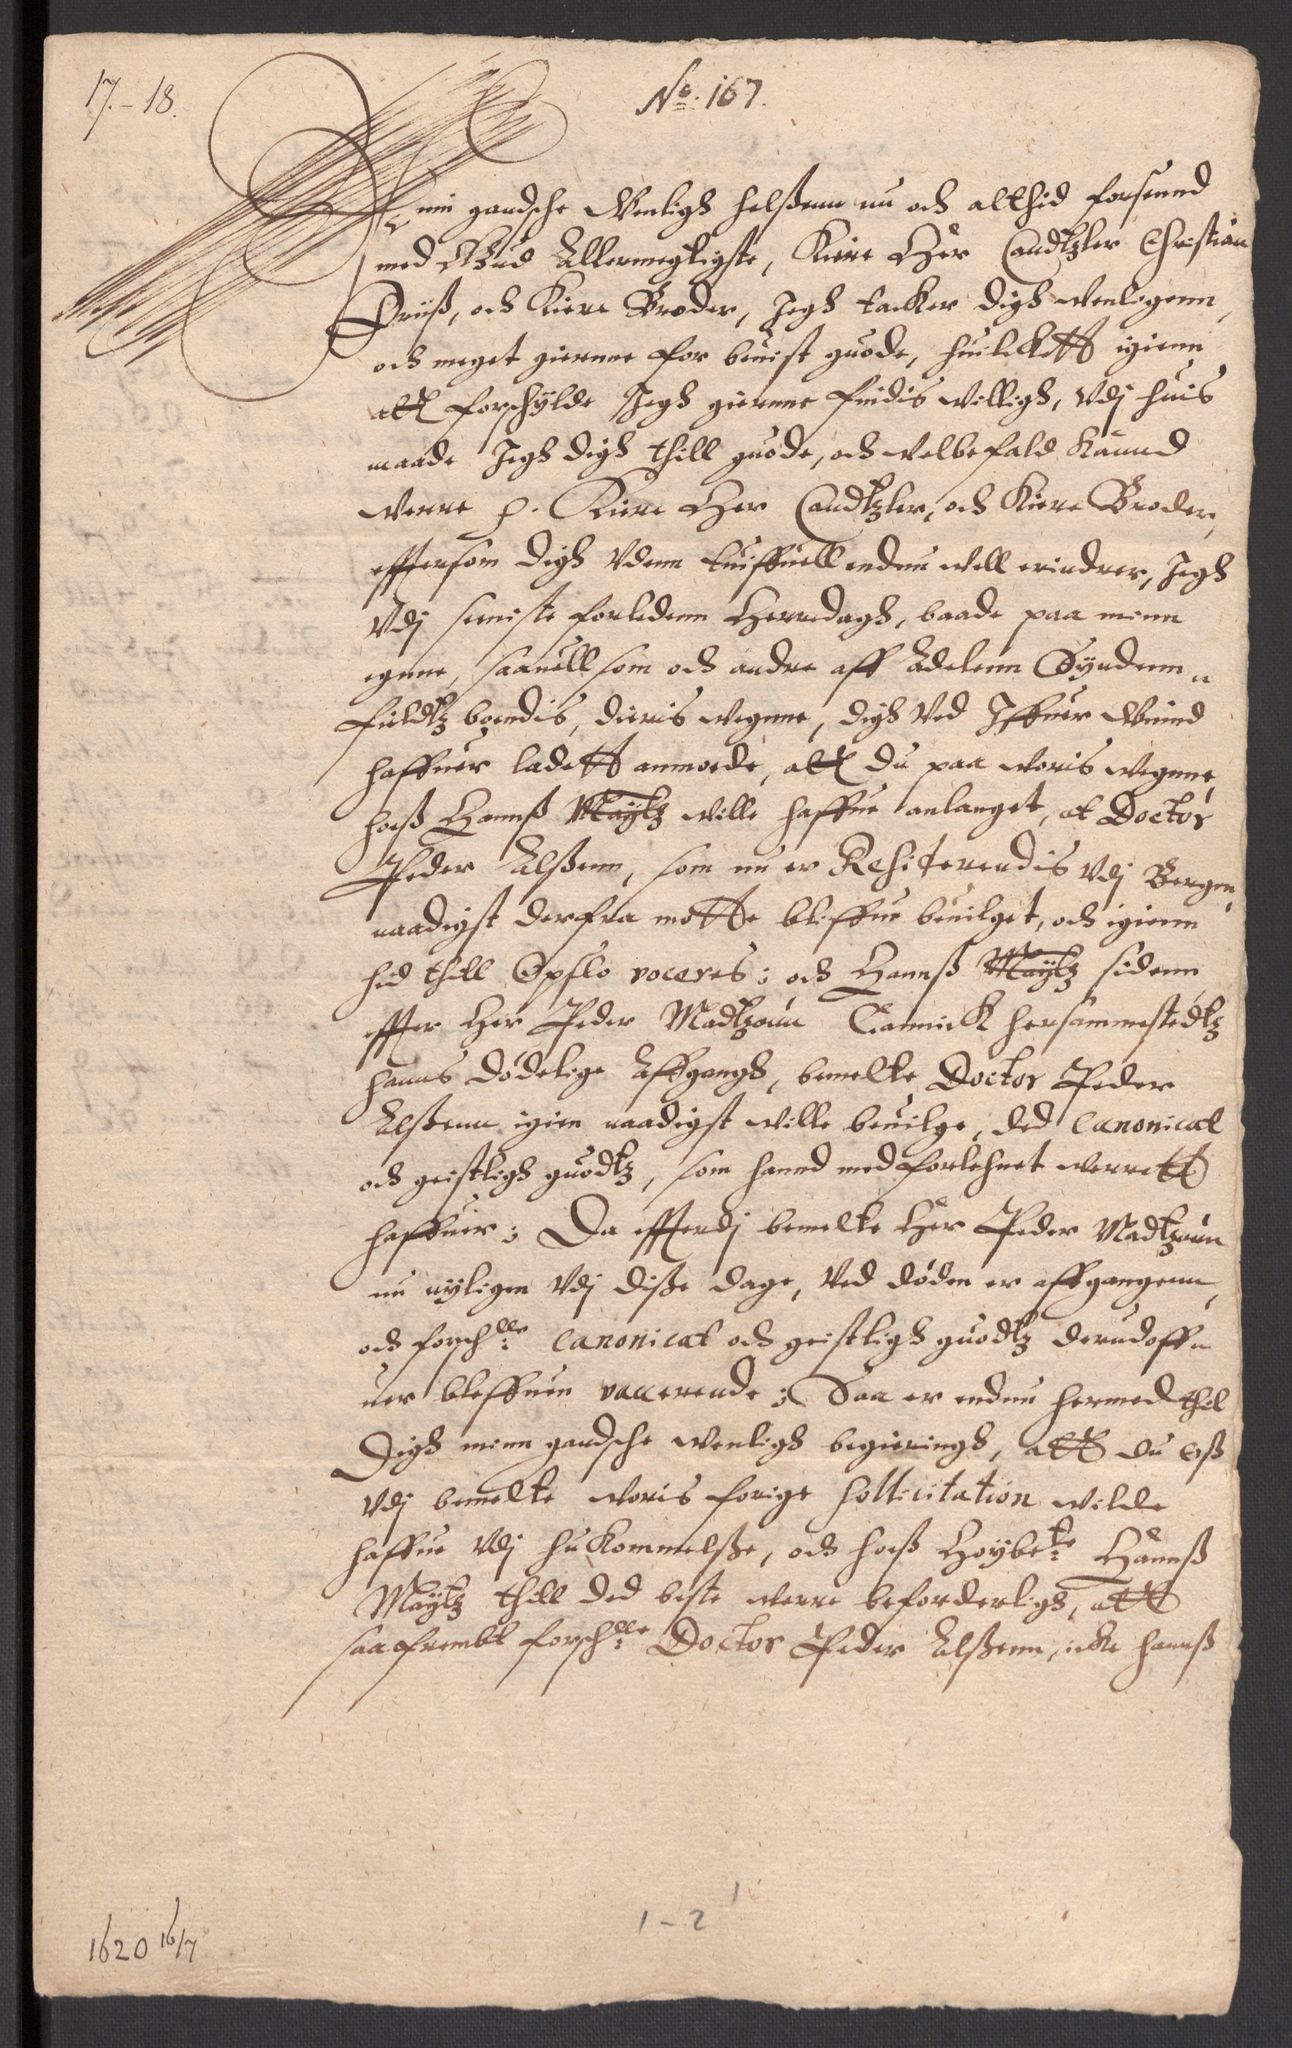 17.-18.
No. 167.
Min gandsche Wenligh helßenn nu och althid forsennd
med Gud Allermegtigste, Kiere Her Candtzler Christian
Friiß, och Kiere Broder, Jegh tacker digh wenligenn,
och meget giernne for beuist guode, huilckett igienn
att forschylde Jegh giernne findis willigh, Vdj huis
maade Jegh digh thill guode, och velbefald kannd
werre p. Kiere Her Candtzler, och Kiere Broder,
effersom digh Vdenn tuiffuell endnu well erindrer, Jegh
Vdj seniste forledenn Herredagh, baade paa minn
egnne, saauell som och andre aff Adelenn Syndenn„
fieldtz boendis, dieris wegnne, digh Ved Iffuer Wiind
haffuer ladett anmoede, att du paa woris wegnne,
hoeß Hannß Maytz wille haffue anlanget, at Doctor
Peder Alßenn, som nu er Residerendis Vdj Bergen,
naadigst derfra motte bliffue beuilget, och igienn
hid thill Opslo voceres; och Hannß Maytz sidenn
effter Her Peder Madtzønn Cannick hersammestedtz
hanns dødelige Affgangh, bemelte Doctor Peder
Alßenn igien naadigst wille beuilge, ded Canonicat
och geistligh guodtz, som hannd med forlehnet werrett
haffuer; Da effterdj bemelte Her Peder Madtzønn
nu nyligen Vdj diße dage, Ved døden er affgangenn,
och forschlle Canonicat och geistligh guodtz derudoff„
uer bleffuen vacerende; Saa er endnu hermed thil
Digh minn gandsche wenligh begieringh, att du oß
Vdj bemelte woris forige sollicitation wilde
haffue Vdj hukommelße, och hoeß Høybete Hannß
Maytz thill ded beste werre beforderligh, att
saafrembt forschlle Doctor Peder Alßenn, icke hannß
1
1-2
1620 16/7